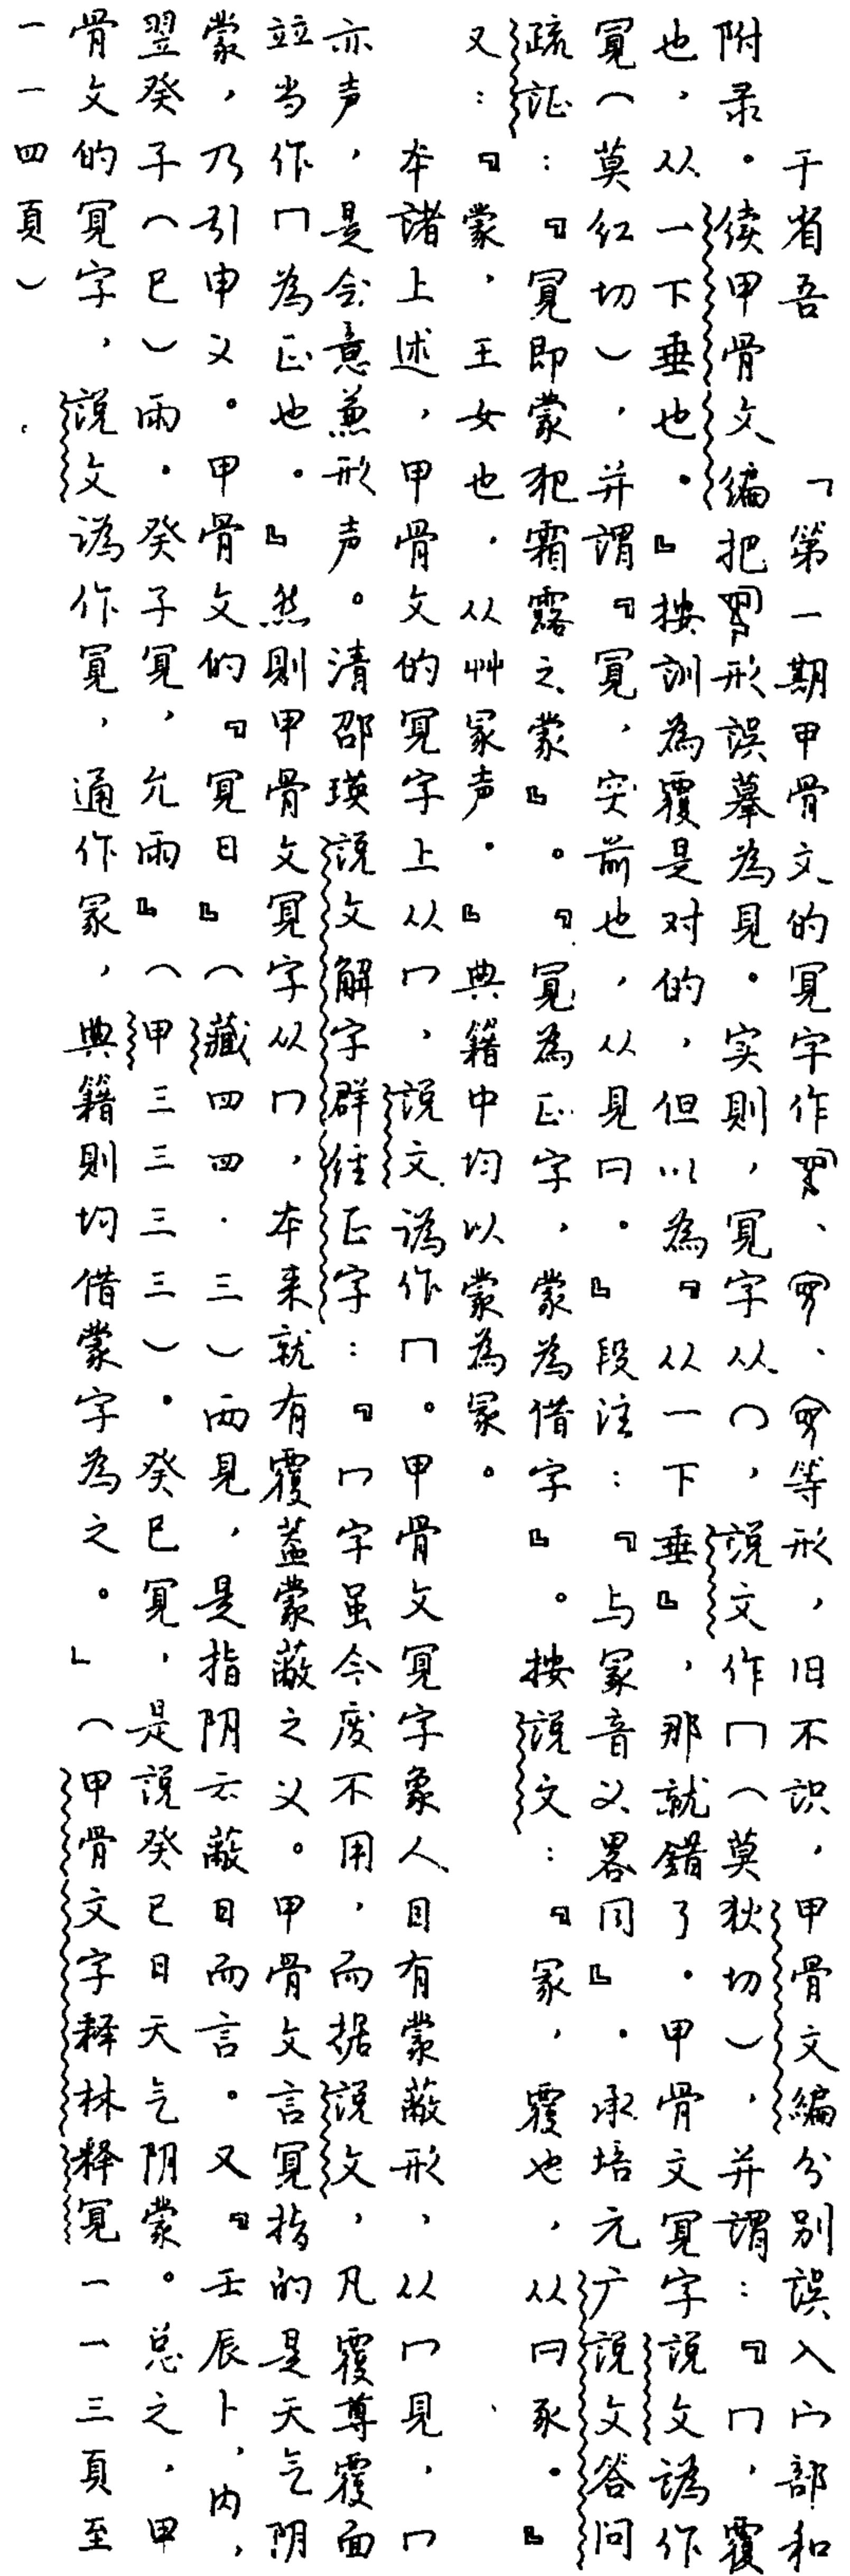 于省吾　「第一期甲骨文的字作、、等形，旧不识，甲骨文編分別誤入宀部和
附录。续甲骨文編把形誤摹為見。实則，字从冖，説文作冖（莫狄切），并謂：『冖，覆
也，从一下垂也。』按訓為覆是对的，但以為『从一下垂』，那就錯了。甲骨文字説文譌作
（莫红切），并謂『，突前也，从見冃。』段注：『与冡音义畧同』。承培元广説文答问
疏证：『即蒙犯霜露之蒙』。『為正字，蒙為借字』。按説文：『冡，覆也，从冃豕。』
又：『蒙，王女也，从艸冡声。』典籍中均以蒙為冡。
本諸上述，甲骨文的字上从冖，説文譌作冃。甲骨文字象人目有蒙蔽形，从冖見，冖
亦声，是会意兼形声。清邵瑛説文解字群经正字：『冖字虽今废不用，而据説文，凡覆尊覆面
竝当作冖為正也。』然則甲骨文字从冖，本来就有覆蓋蒙蔽之义。甲骨文言指的是天气阴
蒙，乃引申义。甲骨文的『日』（藏四四·三）两見，是指阴云蔽日而言。又『壬辰卜，内，
翌癸子（巳）雨。癸子，允雨』（甲三三三三）。癸巳，是説癸巳日天气阴蒙。总之，甲
骨文的字，説文譌作，通作冡，典籍則均借蒙字為之。」（甲骨文字释林释一一三頁至
一一四頁）